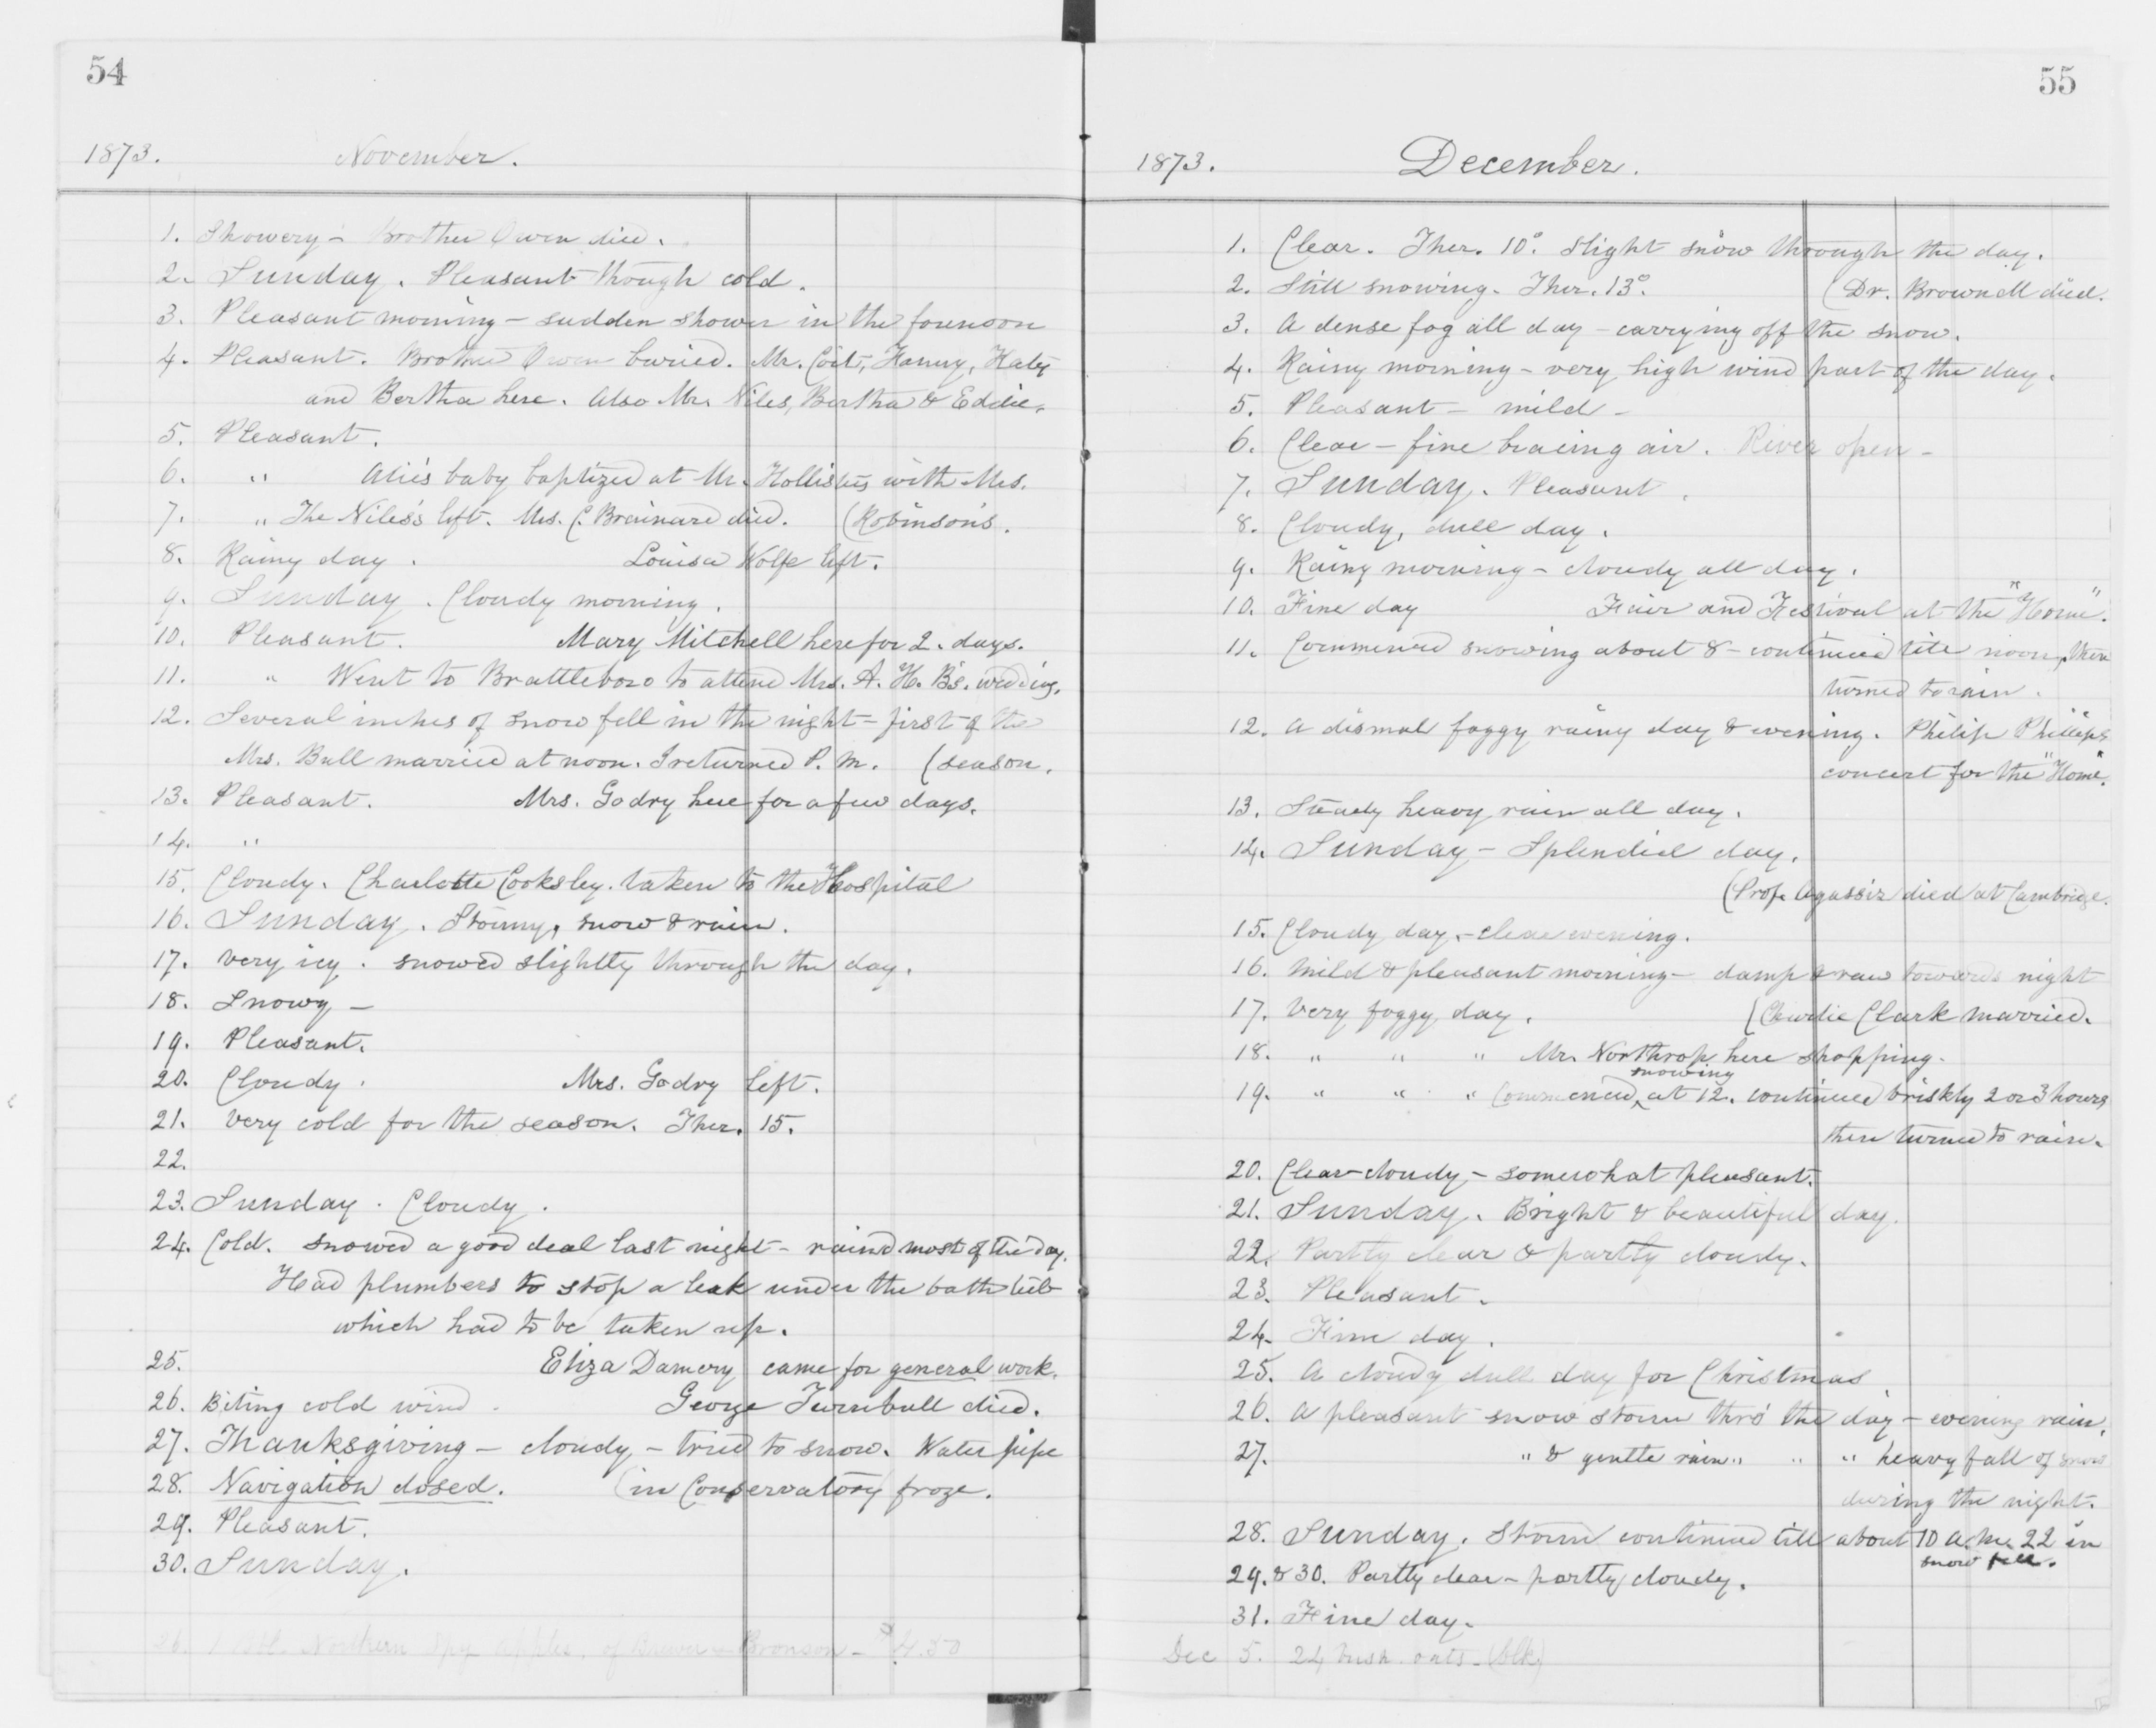 54
1873. November.
1. Showery - Brother Owen died.
2. Sunday. Pleasant though cold.
3. Pleasant morning - sudden shower in the forenoon
4. Pleasant. Brother Owen buried. Mr. Coit, Fanny, Katy
and Bertha here. Also Mr. Niles, Bertha & Eddie.
5. Pleasant.
6. " Alice's baby baptized at Mr. Hollisters with Mrs.
7. " The Niles's left. Mrs. C. Brainard died. (Robinson's.
8. Rainy day. Louisa Wolfe left.
9. Sunday. Cloudy morning.
10. Pleasant. Mary Mitchell here for 2. days.
11. " Went to Brattleboro to attend Mrs. A. H. B's. wedding.
12. Several inches of snow fell in the night - first of the
Mrs. Bull married at noon. I returned P. M. (season.
13. Pleasant. Mrs. Godry here for a few days.
14. "
15. Cloudy. Charlotte Cooksley taken to the Hospital
16. Sunday. Stormy, snow & rain.
17. Very icy. snowed slightly through the day.
18. Snowy -
19. Pleasant.
20. Cloudy. Mrs. Godry left.
21. Very cold for the season. Ther. 15.
22.
23. Sunday. Cloudy.
24. Cold. snowed a good deal last night - rained most of the day.
Had plumbers to stop a leak under the bath tub
which had to be taken up.
25. Eliza Damery came for general work.
26. Biting cold wind. George Turnbull died.
27. Thanksgiving - cloudy - tried to snow. Water pipe
28. Navigation closed. (in Conservatory froze.
29. Pleasant.
30. Sunday.
26. 1 Bbl. Northern Spy apples, of Bronson - $4.50
55
1873. December.
1. Clear. Ther. 10°. slight snow through the day.
2. Still snowing. Ther. 13°. (Dr. Brownell died.
3. A dense fog all day - carrying off the snow.
4. Rainy morning - very high wind part of the day.
5. Pleasant - mild -
6. Clear - fine bracing air. River open -
7. Sunday. Pleasant.
8. Cloudy, dull day.
9. Rainy morning - cloudy all day.
10. Fine day Fair and Festival at the "Home".
11. Commenced snowing about 8 - continued till noon, then
turned to rain.
12. A dismal foggy rainy day & evening. Philip Phillips
concert for the "Home".
13. Steady heavy rain all day.
14. Sunday - Splendid day.
(Prof. Agassiz died at Cambridge.
15. Cloudy day, - clear evening.
16. Mild & pleasant morning - damp & raw towards night
17. Very foggy day. (Charlie Clark married.
18. " " " Mr. Northrop here shopping.
19. " " " Commenced snowing at 12. continued briskly 2 or 3 hours
then turned to rain.
20. Clear - cloudy - somewhat pleasant.
21. Sunday. Bright & beautiful day.
22. Partly clear & partly cloudy.
23. Pleasant.
24. Fine day.
25. A cloudy dull day for Christmas
26. A pleasant snow storm thro' the day - evening rain.
27. " & gentle rain " " " heavy fall of snow
during the night.
28. Sunday. Storm continued till about 10 a.m. 22 in
snow fell.
29. & 30. Partly clear - partly cloudy.
31. Fine day.
Dec 5. 24 bush. oats - (blk)